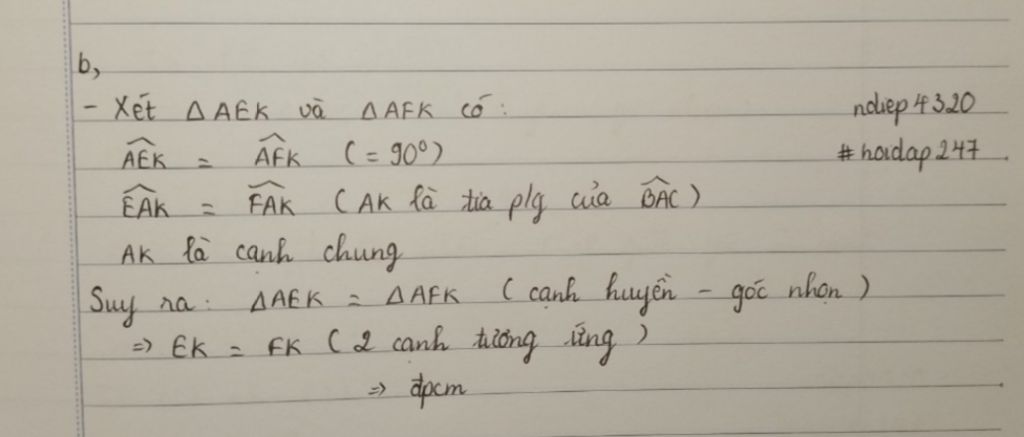 b,
- Xét ΔAEK và ΔAFK có: ndiep4320
ÂEK = ÂFK (= 90°) #hoidap247
ÊAK = F̂AK (AK là tia p/g của B̂AC)
AK là cạnh chung
Suy ra: ΔAEK = ΔAFK (cạnh huyền - góc nhọn)
=> EK = FK (2 cạnh tương ứng)
=> đpcm